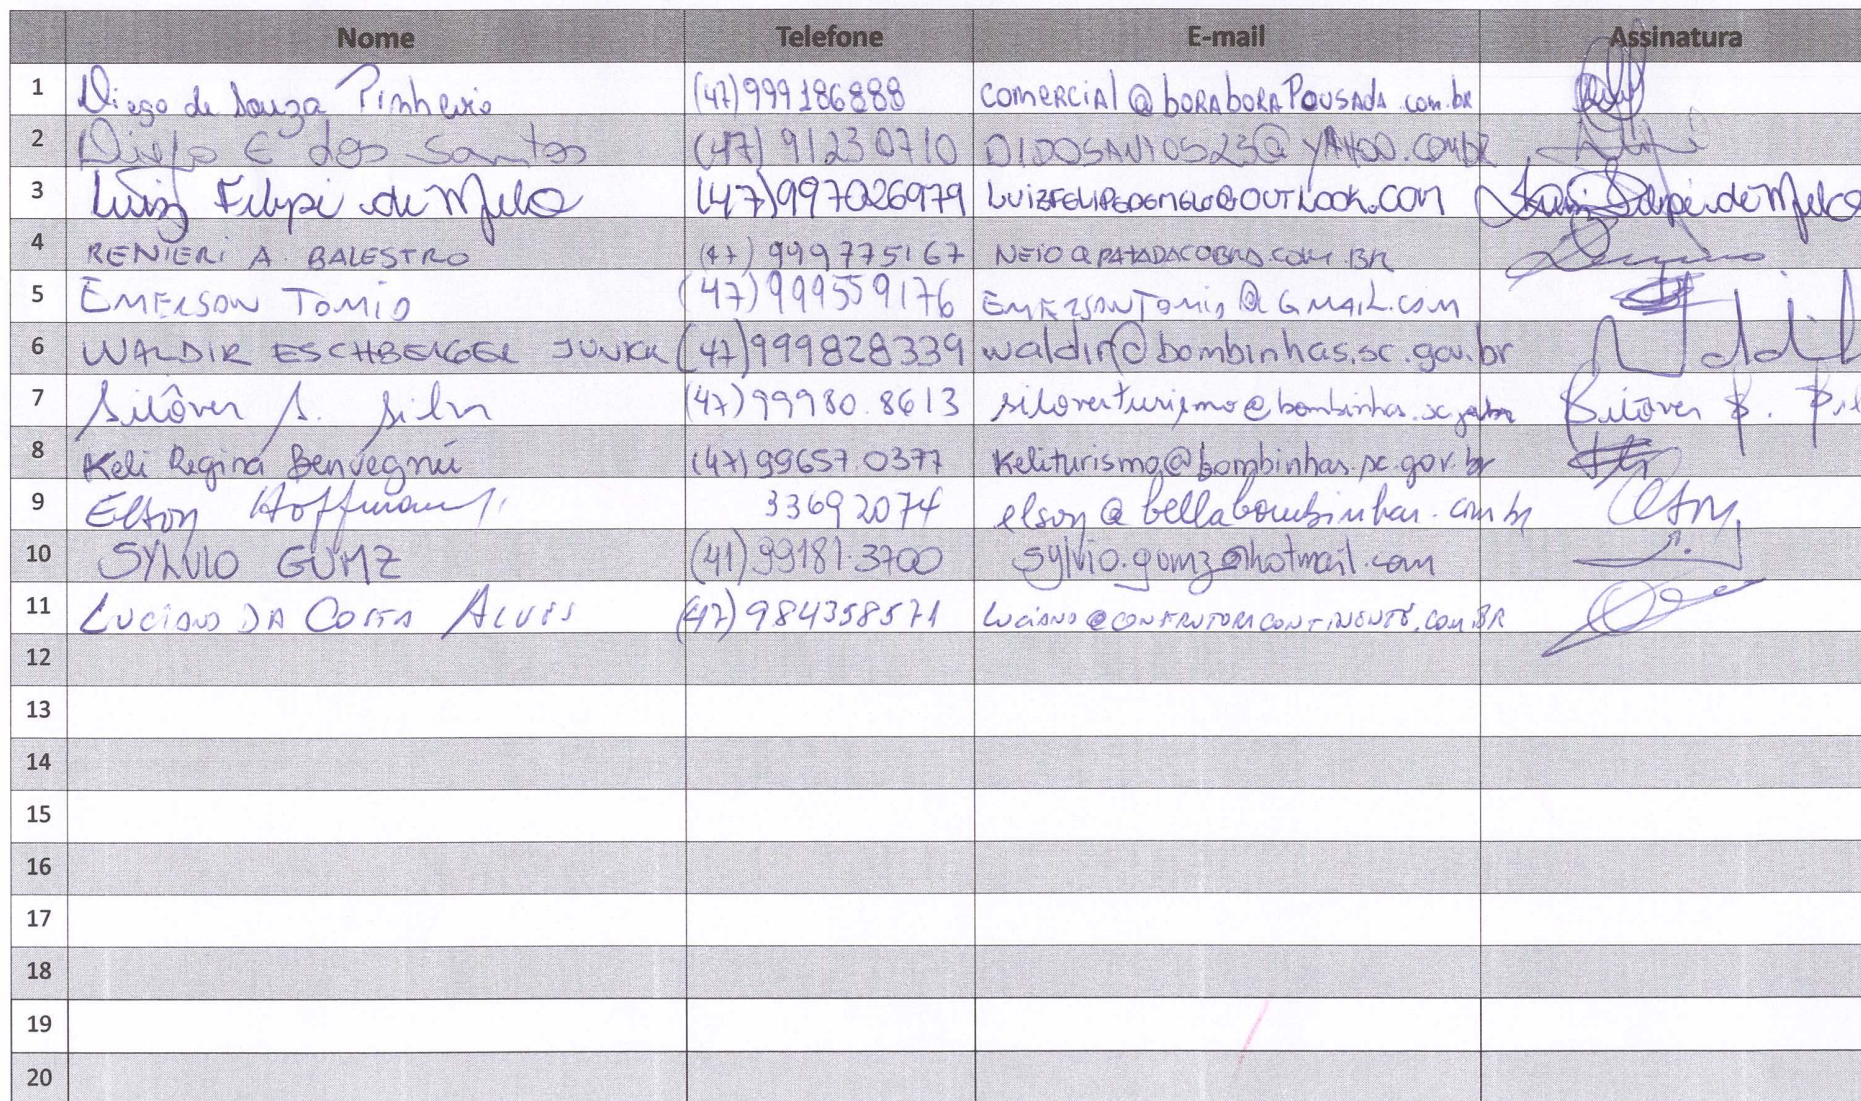 Nome Telefone E-mail Assinatura
1 Diego de Souza Pinheiro (47)999186888 comercial@boraboraPousada.com.br
2 Diego E dos Santos (47) 91230710 DIDOSANTOS23@YAHOO.COM.BR
3 Luiz Felipe de Melo (47)997026979 LUIZFELIPEDEMELO@OUTLOOK.COM Luiz Felipe de Melo
4 RENIERI A. BALESTRO (47) 999775167 NEIO@PATADACOBRA.COM.BR
5 EMERSON TOMIO (47)999559176 EMERSONTOMIO@GMAIL.COM
6 WALDIR ESCHBERGER JUNIOR (47)999828339 waldir@bombinhas.sc.gov.br
7 Silôver S. Silva (47)99980.8613 siloverturismo@bombinhas.sc.gov.br Silôver S.
8 Keli Regina Benvegnú (47)99657.0377 Keliturismo@bombinhas.sc.gov.br
9 Elson Hoffmann 33692074 elson@bellabombinhas.com.br Elson
10 SYLVIO GUMZ (41)99181-3700 sylvio.gumz@hotmail.com
11 LUCIANO DA COSTA ALVES (47)984358571 LUCIANO@CONSTRUTORACONTINENTE.COM.BR
12
13
14
15
16
17
18
19
20